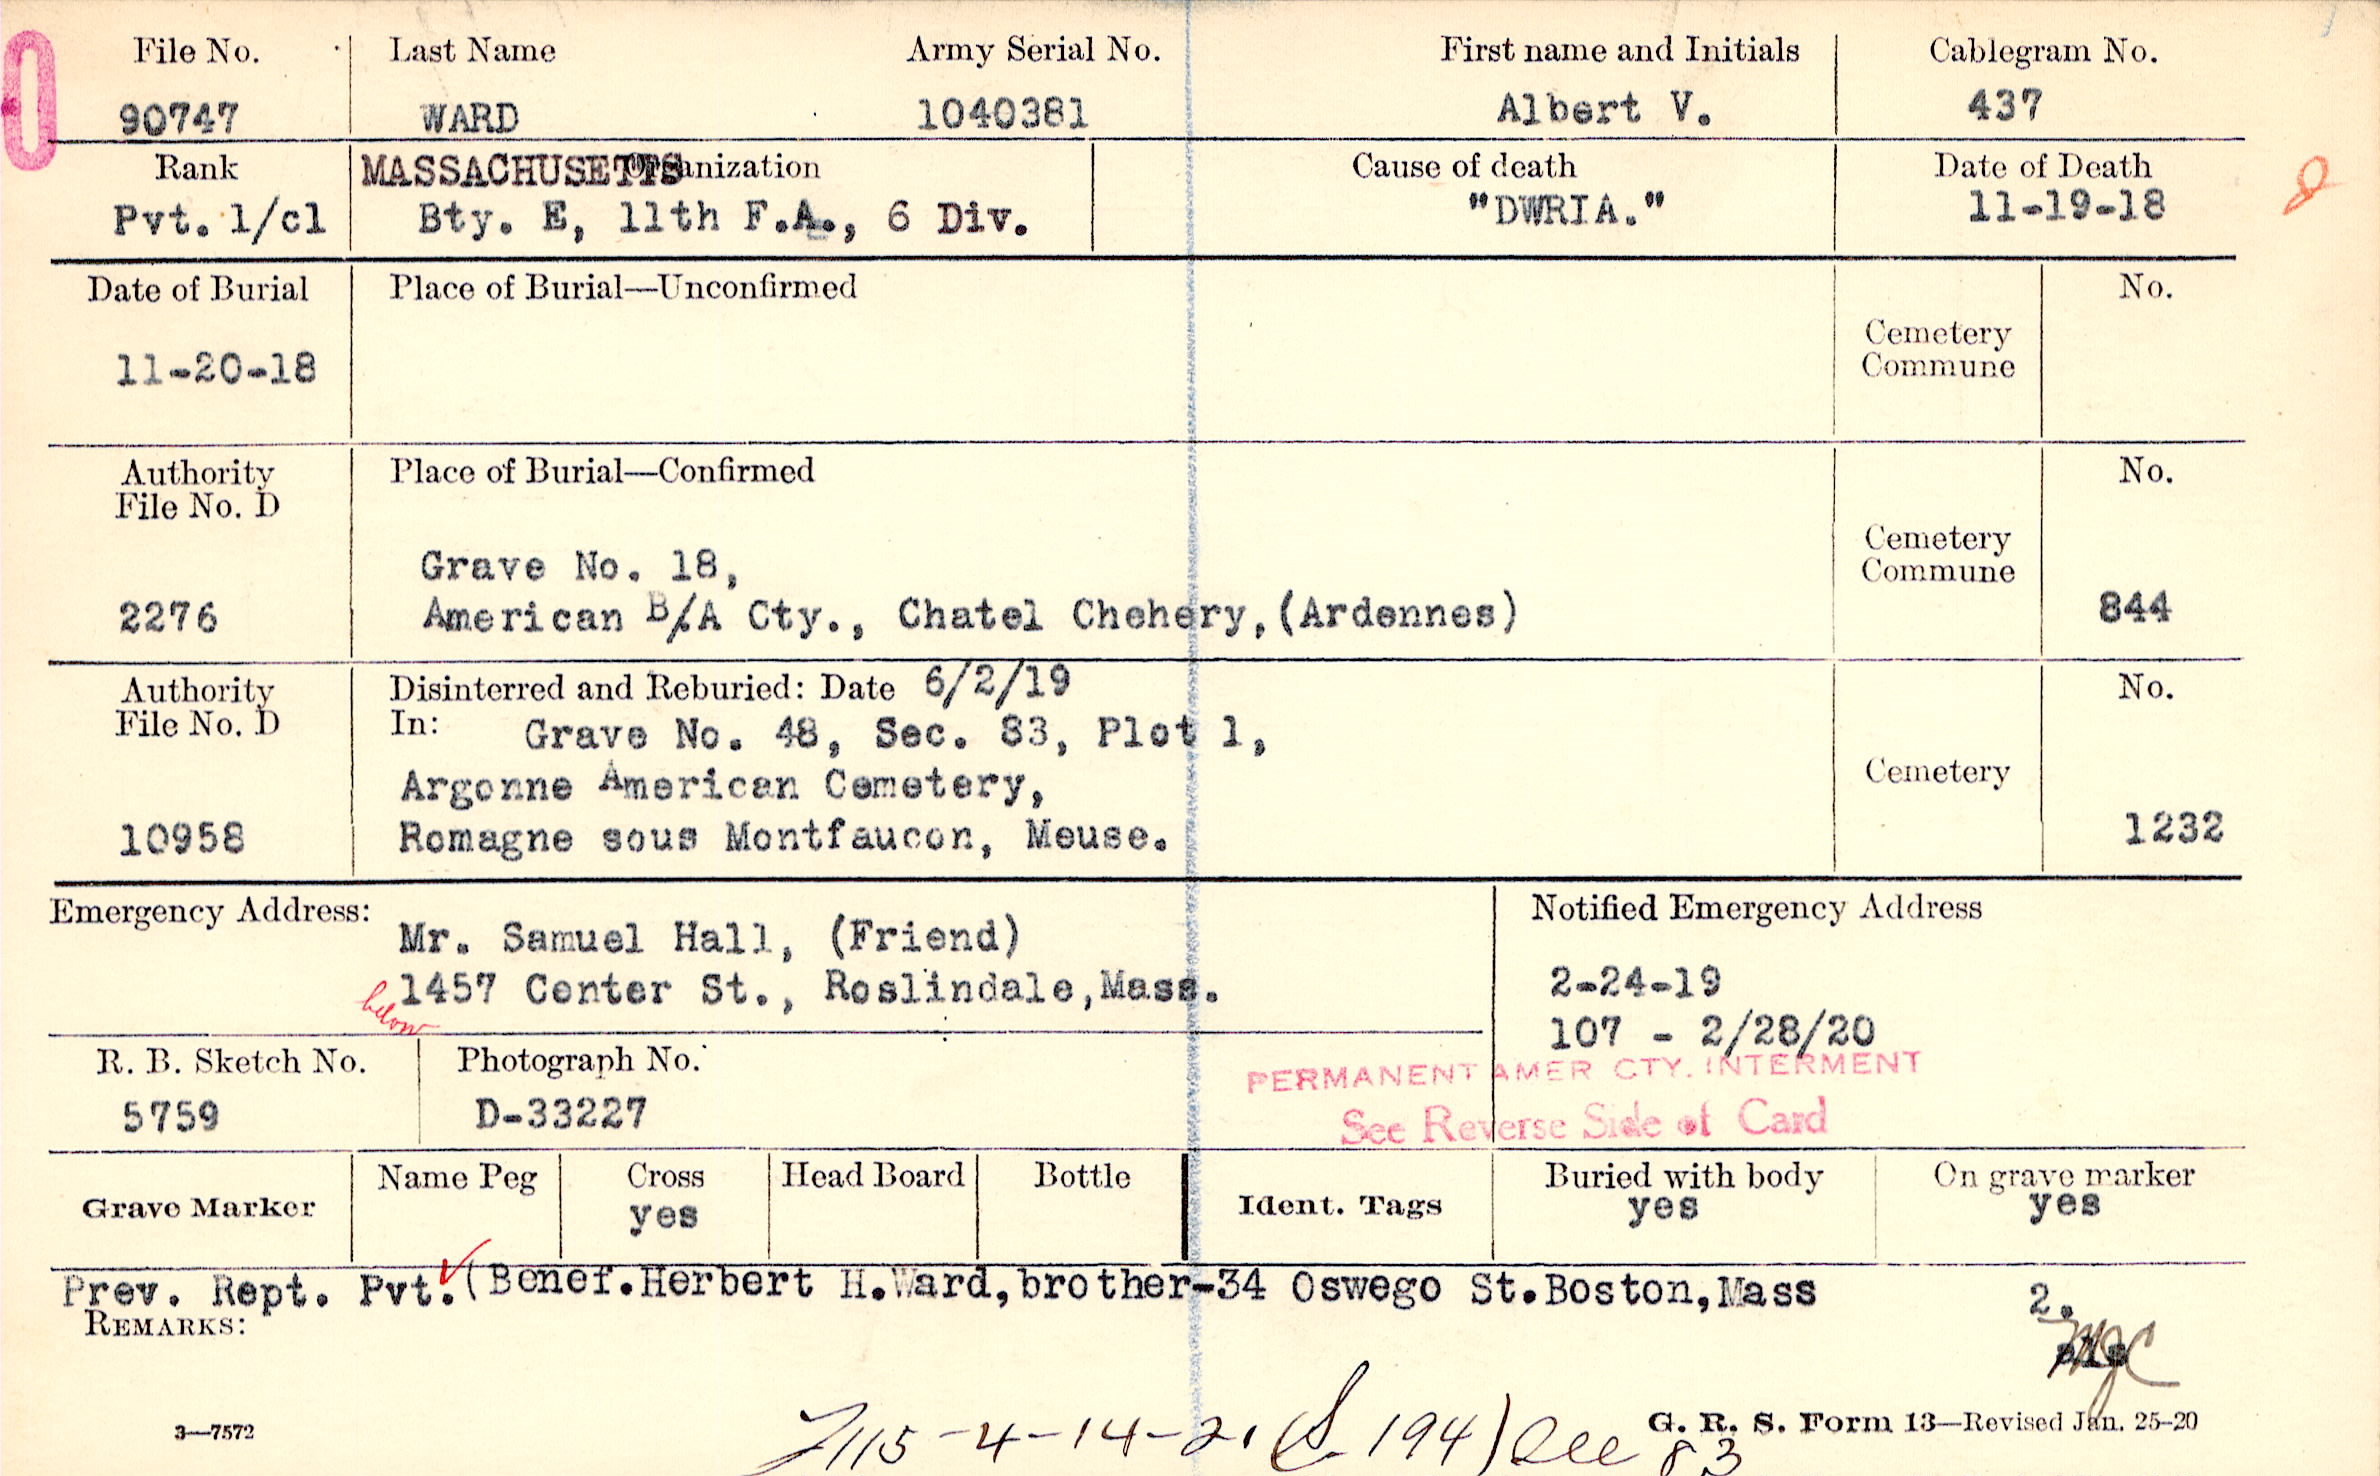 File No. Last Name Army Serial No. First name and Initials Cablegram No.
90747 WARD 1040381 Albert V. 437
Rank MASSACHUSETTS Organization Cause of death Date of Death
Pvt. 1/cl Bty. E, 11th F.A., 6 Div. "DWRIA." 11-19-18
Date of Burial Place of Burial—Unconfirmed No.
Cemetery
Commune
11-20-18
Authority Place of Burial—Confirmed No.
File No. D
Cemetery
Commune
Grave No. 18,
2276 American B/A Cty., Chatel Chehery,(Ardennes) 844
Authority Disinterred and Reburied: Date 6/2/19 No.
File No. D In: Grave No. 48, Sec. 83, Plot 1,
Argonne American Cemetery, Cemetery
10958 Romagne sous Montfaucon, Meuse. 1232
Emergency Address: Notified Emergency Address
Mr. Samuel Hall, (Friend)
1457 Center St., Roslindale,Mass. 2-24-19
below
107 - 2/28/20
R. B. Sketch No. Photograph No.
PERMANENT AMER CTY. INTERMENT
5759 D-33227 See Reverse Side of Card
Grave Marker Name Peg Cross Head Board Bottle Ident. Tags Buried with body On grave marker
yes yes yes
Prev. Rept. Pvt. (Benef.Herbert H.Ward,brother-34 Oswego St.Boston,Mass 2.
REMARKS:
MJC
3—7572 G. R. S. Form 13—Revised Jan. 25-20
115-4-14-21 (S. 194) See 83